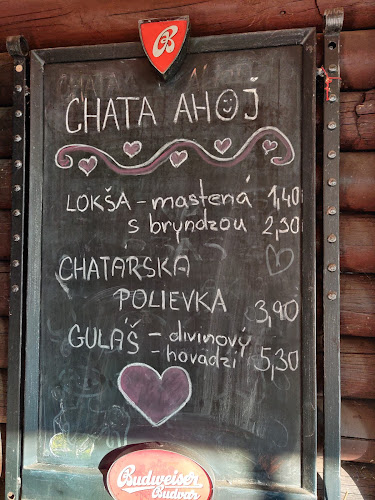 CHATA AHOJ
LOKŠA - mastená 1,40
s bryndzou 2,30
CHATÁRSKA
POLIEVKA 3,90
GULÁŠ - divinový
- hovädzí 5,30
Budweiser
Budvar